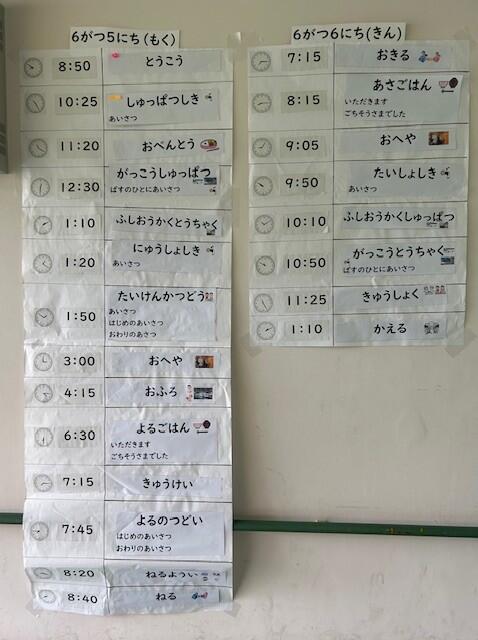 6がつ5にち(もく)
8:50 とうこう
10:25 しゅっぱつしき
あいさつ
11:20 おべんとう
12:30 がっこうしゅっぱつ
ばすのひとにあいさつ
1:10 ふしおうかくとうちゃく
1:20 にゅうしょしき
あいさつ
1:50 たいけんかつどう
あいさつ
はじめのあいさつ
おわりのあいさつ
3:00 おへや
4:15 おふろ
6:30 よるごはん
いただきます
ごちそうさまでした
7:15 きゅうけい
7:45 よるのつどい
はじめのあいさつ
おわりのあいさつ
8:20 ねるようい
8:40 ねる
6がつ6にち(きん)
7:15 おきる
8:15 あさごはん
いただきます
ごちそうさまでした
9:05 おへや
9:50 たいしょしき
あいさつ
10:10 ふしおうかくしゅっぱつ
10:50 がっこうとうちゃく
ばすのひとにあいさつ
11:25 きゅうしょく
1:10 かえる